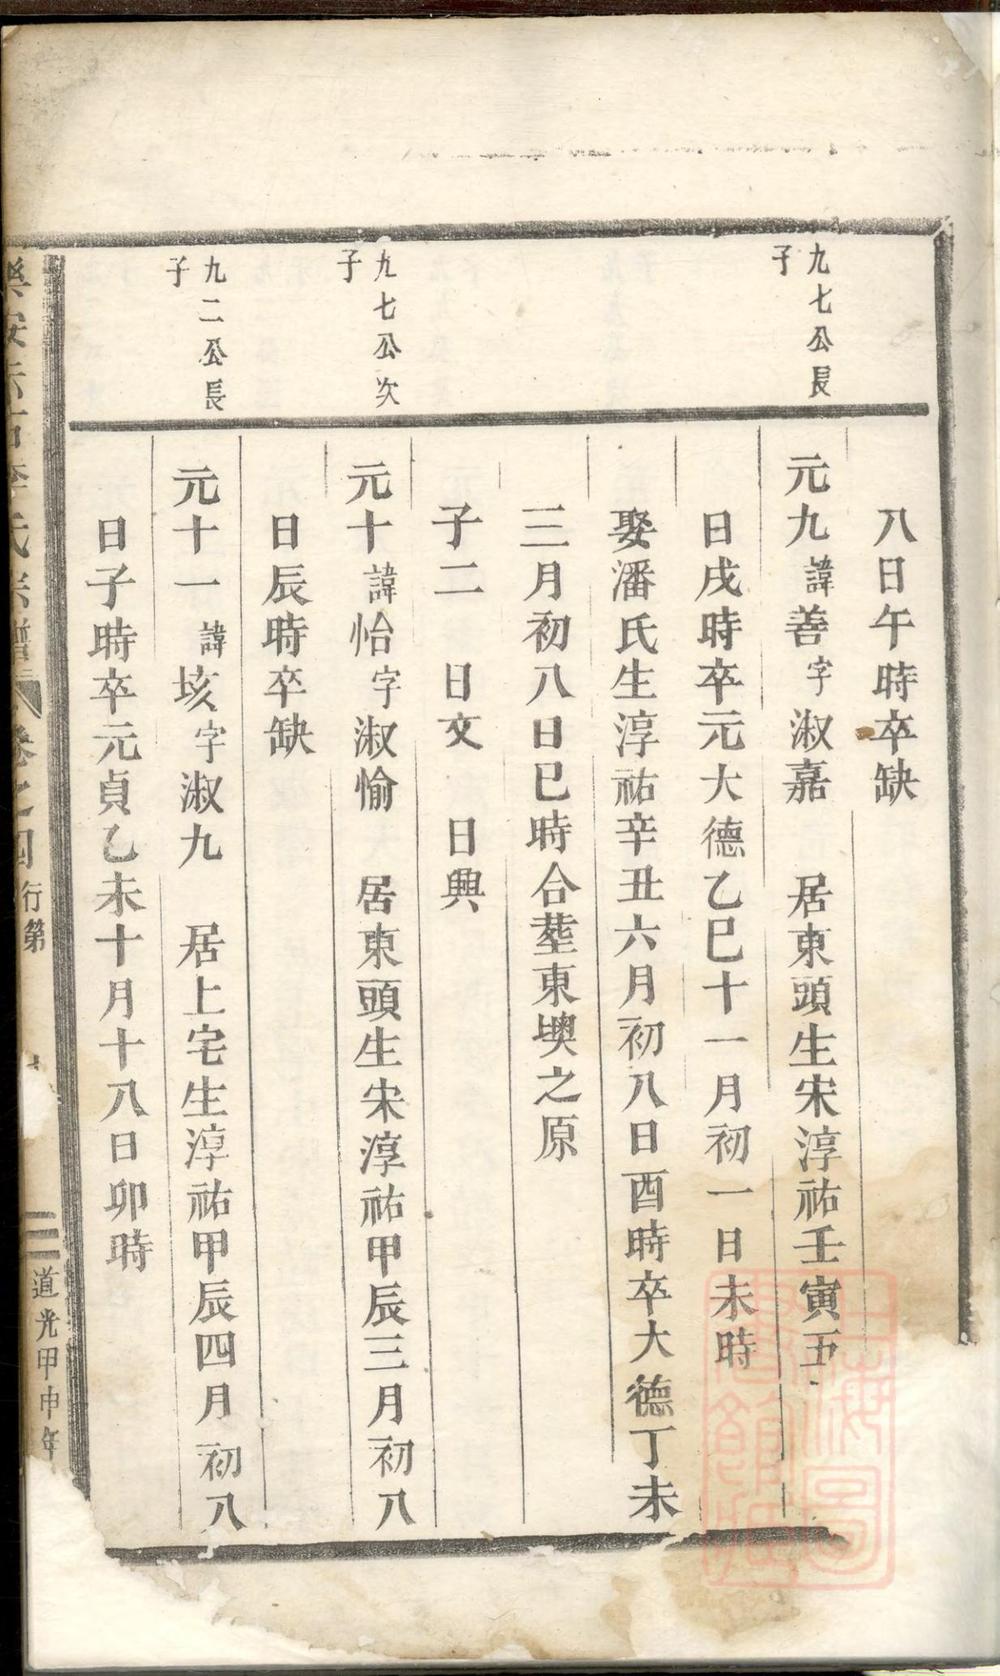 九七公長
子
九七公次
子
九二公長
子
八日午時卒缺
元九諱善字淑嘉　居東頭生宋淳祐壬寅五
日戌時卒元大德乙巳十一月初一日未時
娶潘氏生淳祐辛丑六月初八日酉時卒大德丁未
三月初八日巳時合塟東墺之原
子二　日文　日興
元十諱怡字淑愉　居東頭生宋淳祐甲辰三月初八
日辰時卒缺
元十一諱垓字淑九　居上宅生淳祐甲辰四月初八
日子時卒元貞乙未十月十八日卯時
氏宗譜　卷之四　行第　道光甲申年